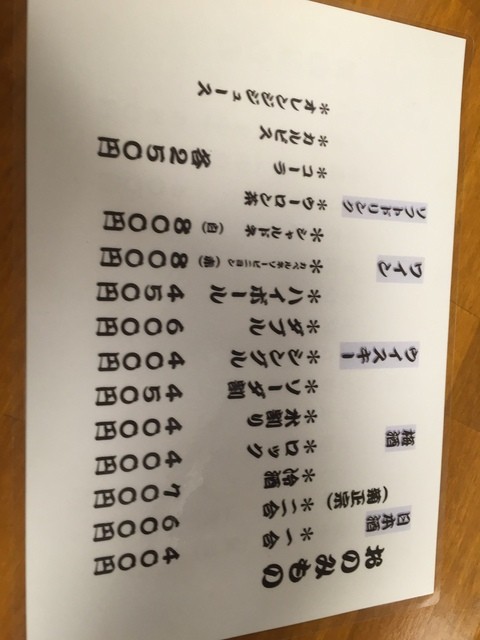 おのみもの
日本酒
(菊正宗)
*一合 400円
*二合 600円
*冷酒 700円
梅酒
*ロック 400円
*水割り 400円
*ソーダ割 450円
ウイスキー
*シングル 400円
*ダブル 600円
*ハイボール 450円
ワイン
*カベルネソービニヨン(赤) 800円
*シャルドネ(白) 800円
ソフトドリンク
*ウーロン茶
*コーラ 各250円
*カルピス
*オレンジジュース